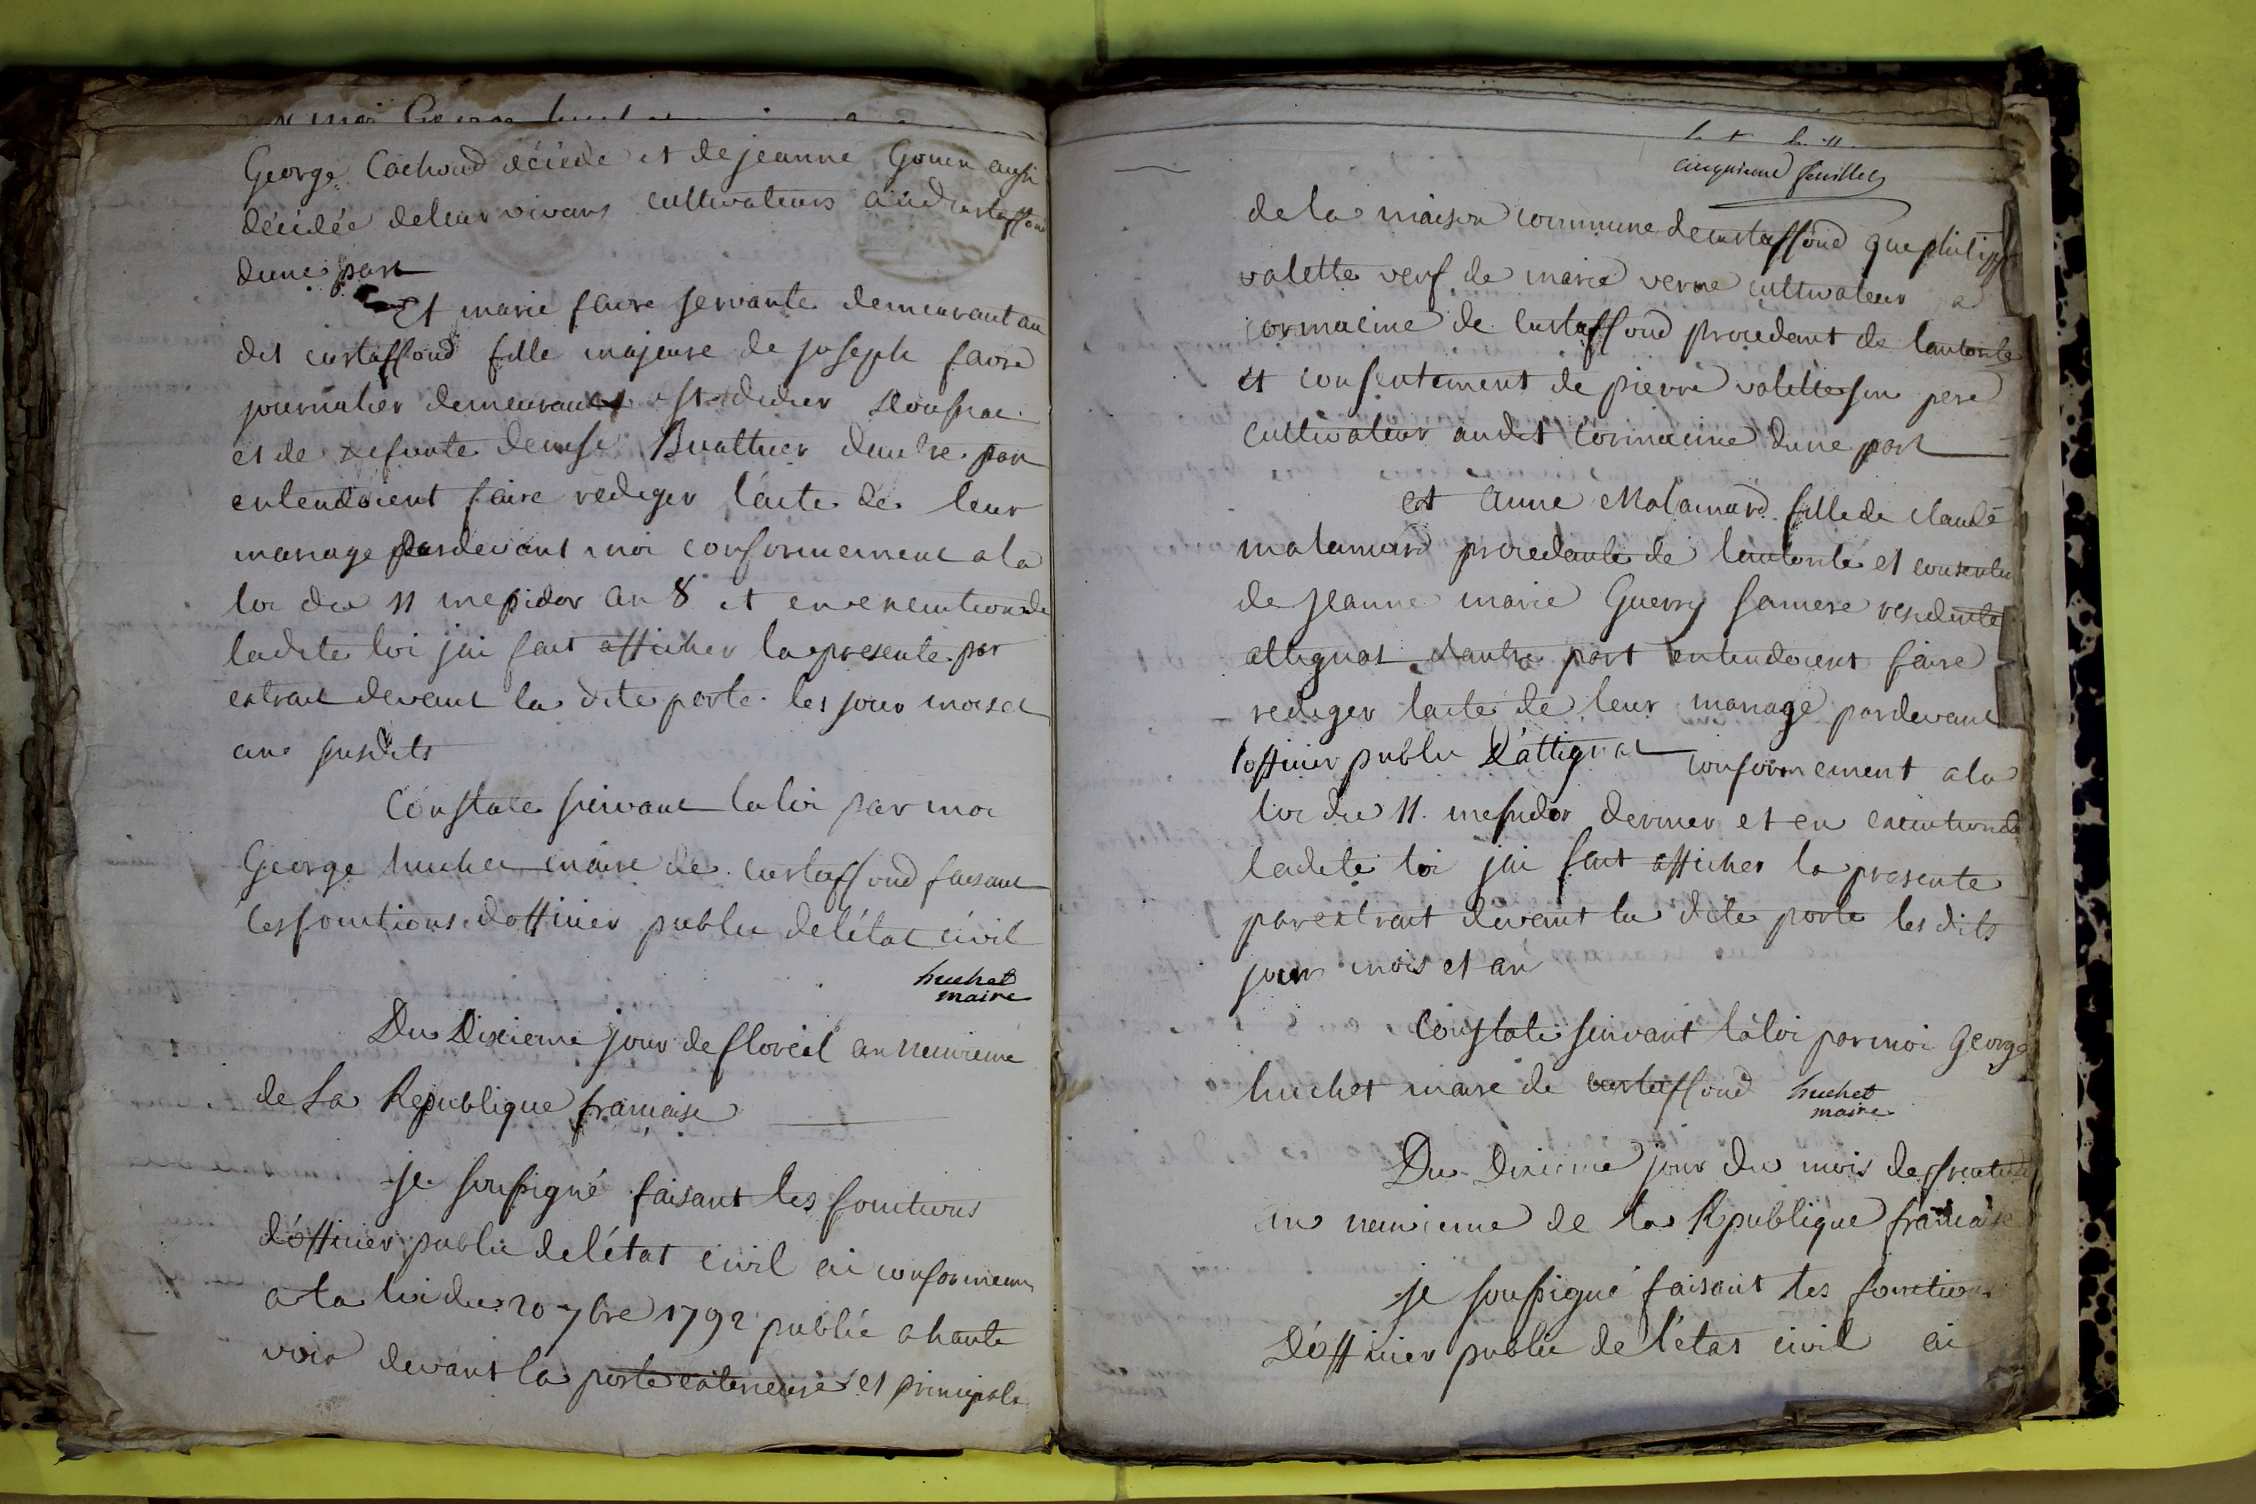 George Cachoud décédé et de jeanne Gouen aussi
décédée deleur vivans cultivateurs audit curtaffond
dune part
Et marie favre servante demeurant au
dit curtaffond fille majeure de joseph favre
journalier demeurant a st didier doussiac
et de defunte denise Buathier dautre part
entendoient faire rediger lacte de leur
mariage pardevant moi conformement a la
loi du 11 messidor an 8 et en execution de
ladite loi jai fait afficher la presente par
extrait devant la dite porte les jour mois et
an susdits
Constate suivant la loi par moi
George huchet maire de curtaffond faisant
les fonctions dofficier public de létat civil
huchet
maire
Du Dixieme jour de floreal an neuvieme
de La Republique francaise
je soussigné faisant les fonctions
dofficier public de létat civil ai conformemt
a la loi du 20 7bre 1792 publié a haute
voix devant la porte exterieure et principale
cinquieme feuillet
de la maison commune de curtaffond que philippe
valette veuf de marie verne cultivateur a
cormacine de curtaffond procedant de lautorité
et consentement de pierre valette son pere
cultivateur audit cormacine dune part
et Anne Malamard fille de claude
malamard procedante de lautorité et consentemt
de jeanne marie Guerry sa mere residente
attignat dautre part entendoient faire
rediger lacte de leur mariage pardevant
lofficier public Dattignat conformement a la
loi du 11 messidor dernier et en execution de
ladite loi jai fait afficher la presente
par extrait devant la dite porte les dits
jour mois et an
Constate suivant la loi par moi George
huchet maire de curtaffond huchet
maire
Du Dixieme jour du mois de fructidor
an neuvieme de la Republique francaise
je soussigné faisant les fonctions
Dofficier public de létat civil ai